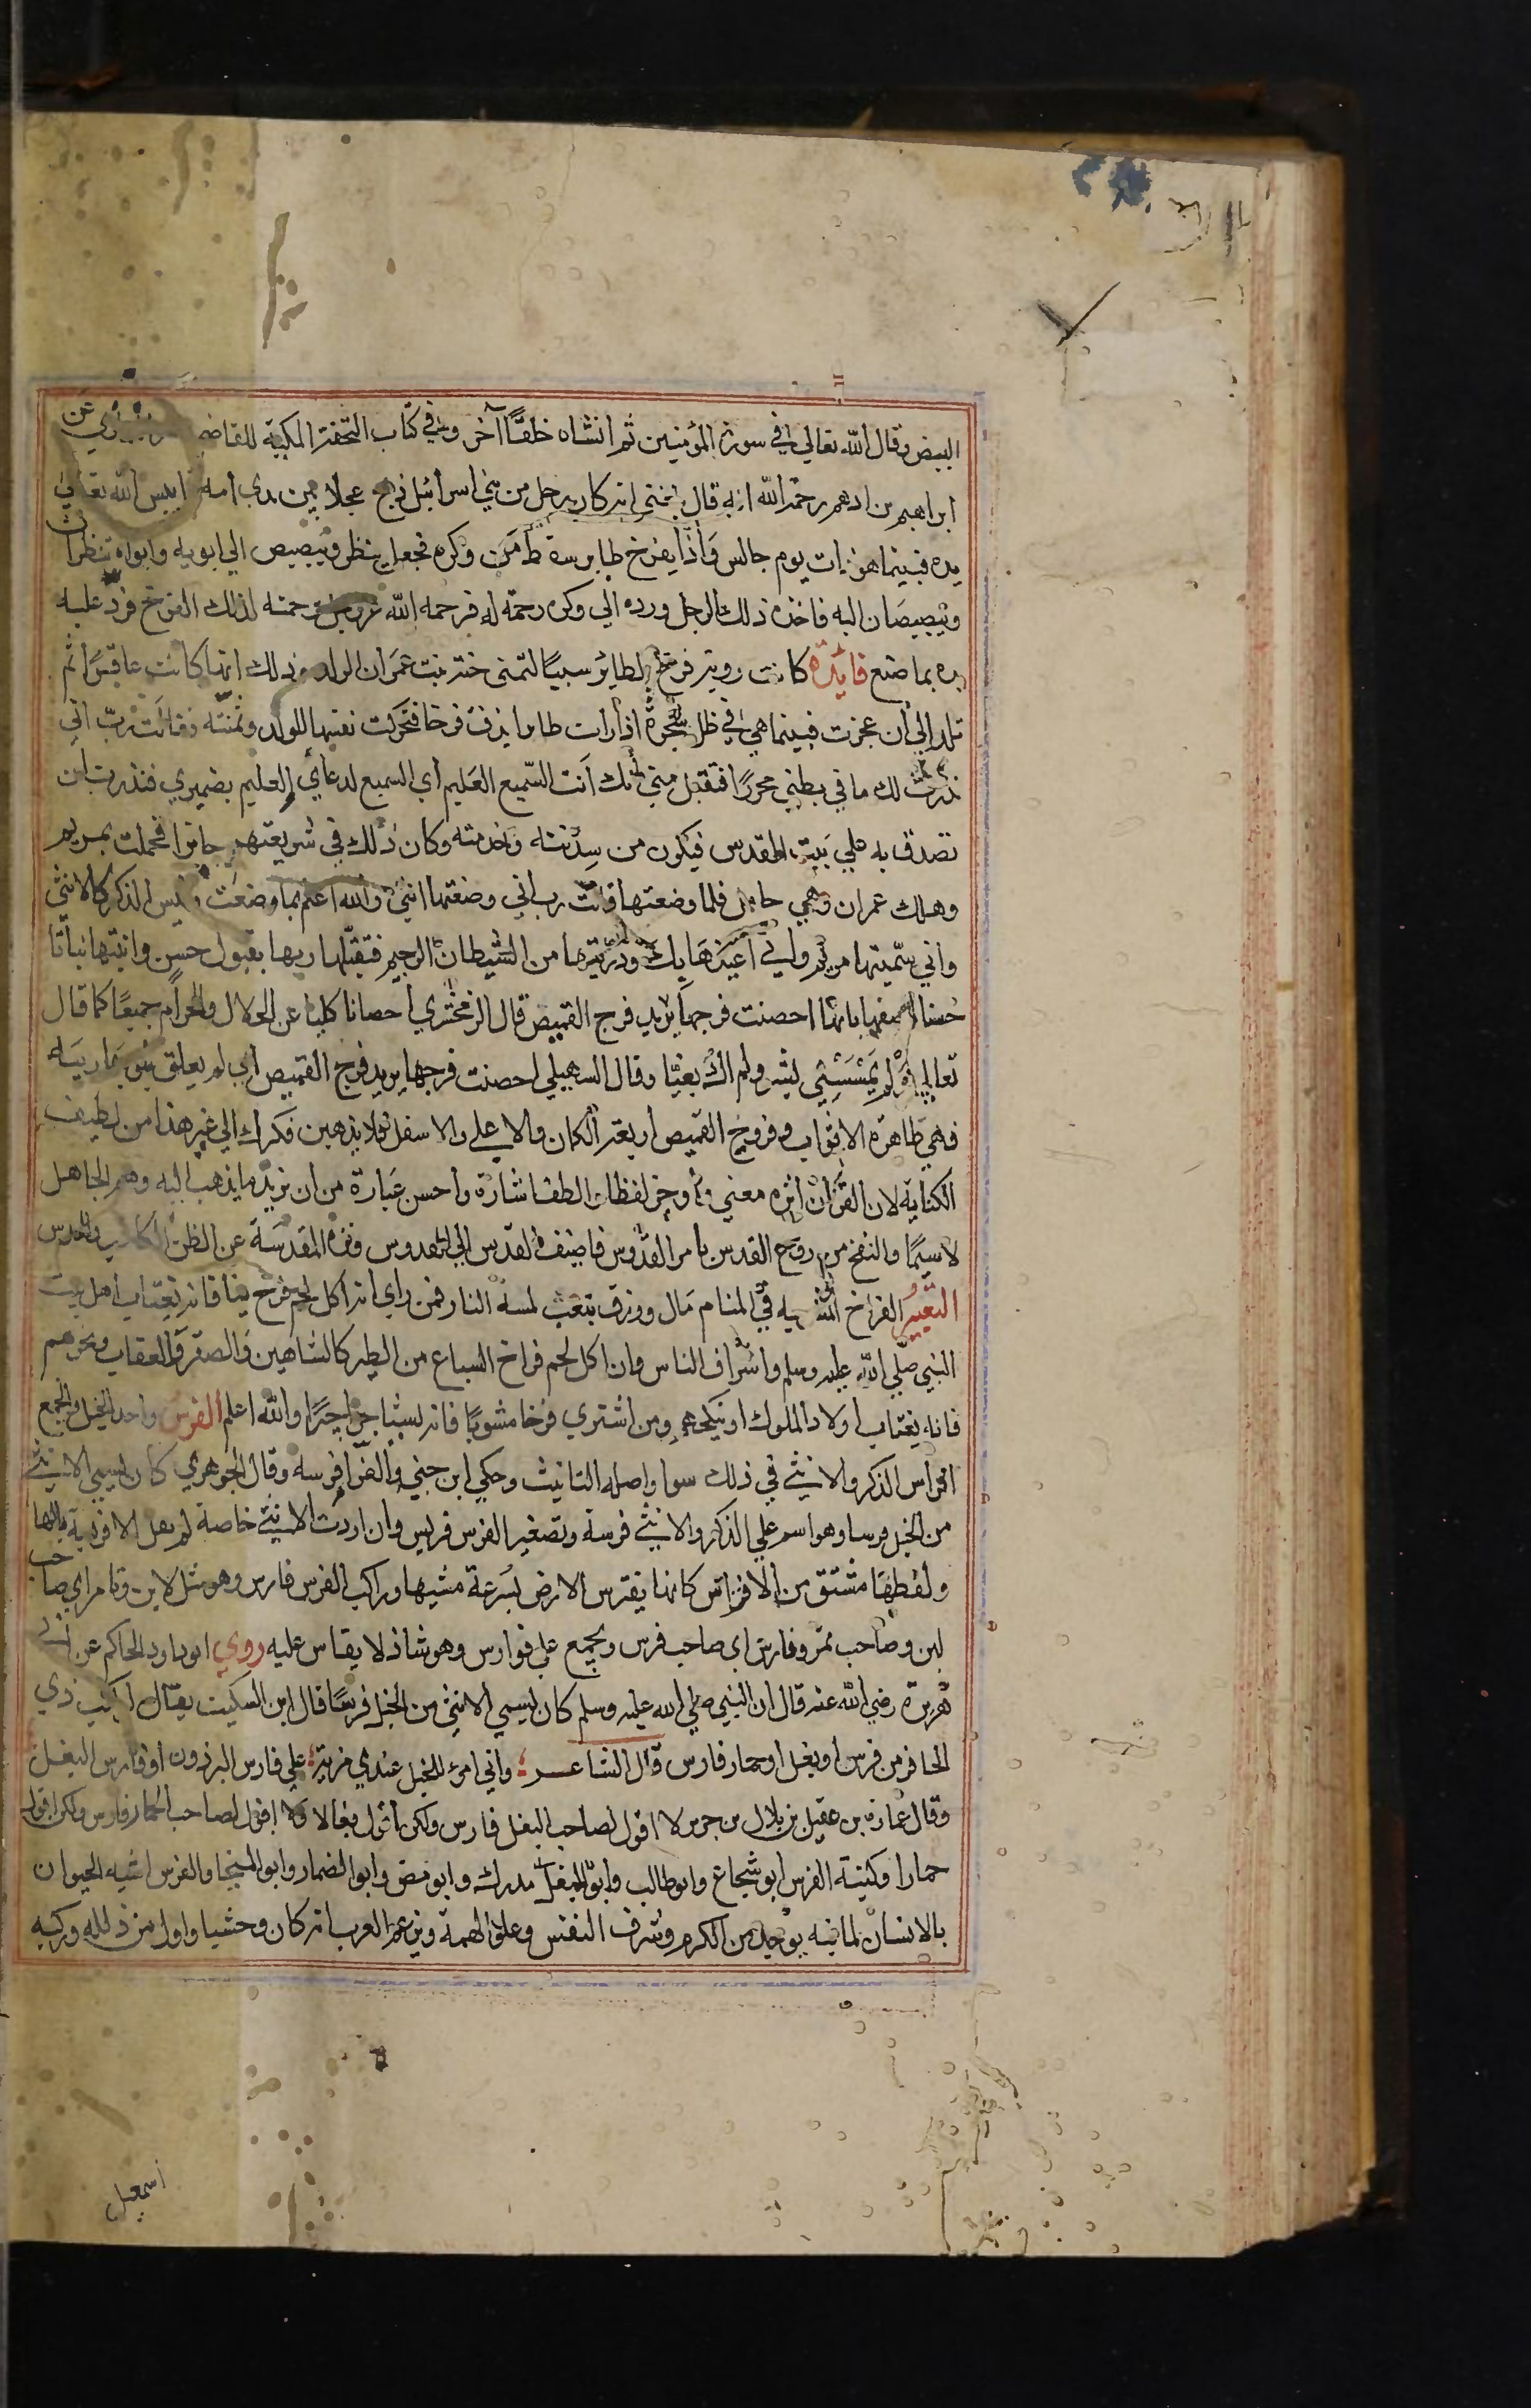 البيض وقال الله تعالي في سورة المؤمنين ثم انشاه خلقا آخر وفي كتاب التحفة المكية للقاضي عن
ابراهيم بن ادهم رحمة الله انه قال بلغني انه كان رجل من بني اسرائيل ذبح عجلا بين يدي امه فايبس الله تعالي
يده فبينما هو ذات يوم جالس واذا بفرخ طاير سقط من وكره فجعل ينظر ويبصبص الي ابويه وابواه ينظران
ويبصبصان اليه فاخذه ذلك الرجل ورده الي وكره رحمة له فرحمه الله عز وجل برحمته لذلك الفرخ فرد عليه
يده بما صنع فائدة كانت روية فرخ الطائر سببا لتمني حنة بنت عمران الولد وذلك انها كانت عاقرا لم
تلد الي ان عجزت فبينما هي في ظل شجرة اذ رات طايرا يزق فرخا فتحركت نفسها للولد وتمنته فقالت رب اني
نذرت لك ما في بطني محررا فتقبل مني انك انت السميع العليم أي السميع لدعاي العليم بضميري فنذرت ان
تصدق به علي بيت المقدس فيكون من سدنته وخدمته وكان ذلك في شريعتهم جائزا فحملت بمريم
وهلك عمران وهي حامل فلما وضعتها قالت رب اني وضعتها انثي والله اعلم بما وضعت وليس الذكر كالانثي
واني سميتها مريم واني اعيذها بك وذريتها من الشيطان الرجيم فتقبلها ربها بقبول حسن وانبتها نباتا
حسنا وصفها بانها احصنت فرجها يريد فرج القميص قال الزمخشري احصانا كليا عن الحلال والحرام جميعا كما قال
تعالي ولم يمسسني بشر ولم اك بغيا وقال السهيلي احصنت فرجها يريد فرج القميص أي لم يعلق بثوبها ريبة
فهي طاهرة الاثواب وفروج القميص اربعة الكمان والاعلي والاسفل فلا يذهبن فكرك الي غير هذا من لطيف
الكناية لان القرآن انزه معني واوجز لفظا والطف اشارة واحسن عبارة من ان يريد ما يذهب اليه وهم الجاهل
لا سيما والنفخ من روح القدس بامر القدوس فاضف القدس الي القدوس ونزه المقدسة عن الظن الكاذب والحدس
التعبير الفراخ المشويه في المنام مال ورزق بتعب لمسه النار فمن راي انه اكل لحم فرخ نيا فانه يغتاب اهل بيت
النبي صلي الله عليه وسلم واشراف الناس وان اكل لحم فراخ السباع من الطير كالشاهين والصقر والعقاب ونحوهم
فانه يغتاب اولاد الملوك او ينكحهم ومن اشتري فرخا مشويا فانه يستاجر اجيرا والله اعلم الفرس واحد الخيل والجمع
افراس الذكر والانثي في ذلك سوا واصله التانيث وحكي ابن جني والفرا فرسه وقال الجوهري كان يسمي الانثي
من الخيل فرسا وهو اسم علي الذكر والانثي فرسة وتصغير الفرس فريس وان اردت الانثي خاصة لم يقل الا فريسة بالها
ولفظها مشتق من الافتراس كانها يفترس الارض بسرعة مشيها وراكب الفرس فارس وهو مثل لابن وتامر اي صاحب
لبن وصاحب تمر وفارس اي صاحب فرس ويجمع علي فوارس وهو شاذ لا يقاس عليه روي ابو داود والحاكم عن ابي
هريرة رضي الله عنه قال ان النبي صلي الله عليه وسلم كان يسمي الانثي من الخيل فرسا قال ابن السكيت يقال لراكب ذي
الحافر من فرس او بغل او حمار فارس قال الشاعر واني امرؤ للخيل عندي مزية علي فارس البرذون او فارس البغل
وقال عمارة بن عقيل بن بلال بن جرير لا اقول لصاحب البغل فارس ولكن اقول بغالا ولا اقول لصاحب الحمار فارس ولكن اقول
حمارا وكنية الفرس ابو شجاع وابو طالب وابو مدرك وابو مضي وابو الضمار وابو المنجا والفرس اشبه الحيوان
بالانسان لما فيه يوجد من الكرم وشرف النفس وعلو الهمة وتزعم العرب انه كان وحشيا واول من ذلله وركبه
اسمعيل